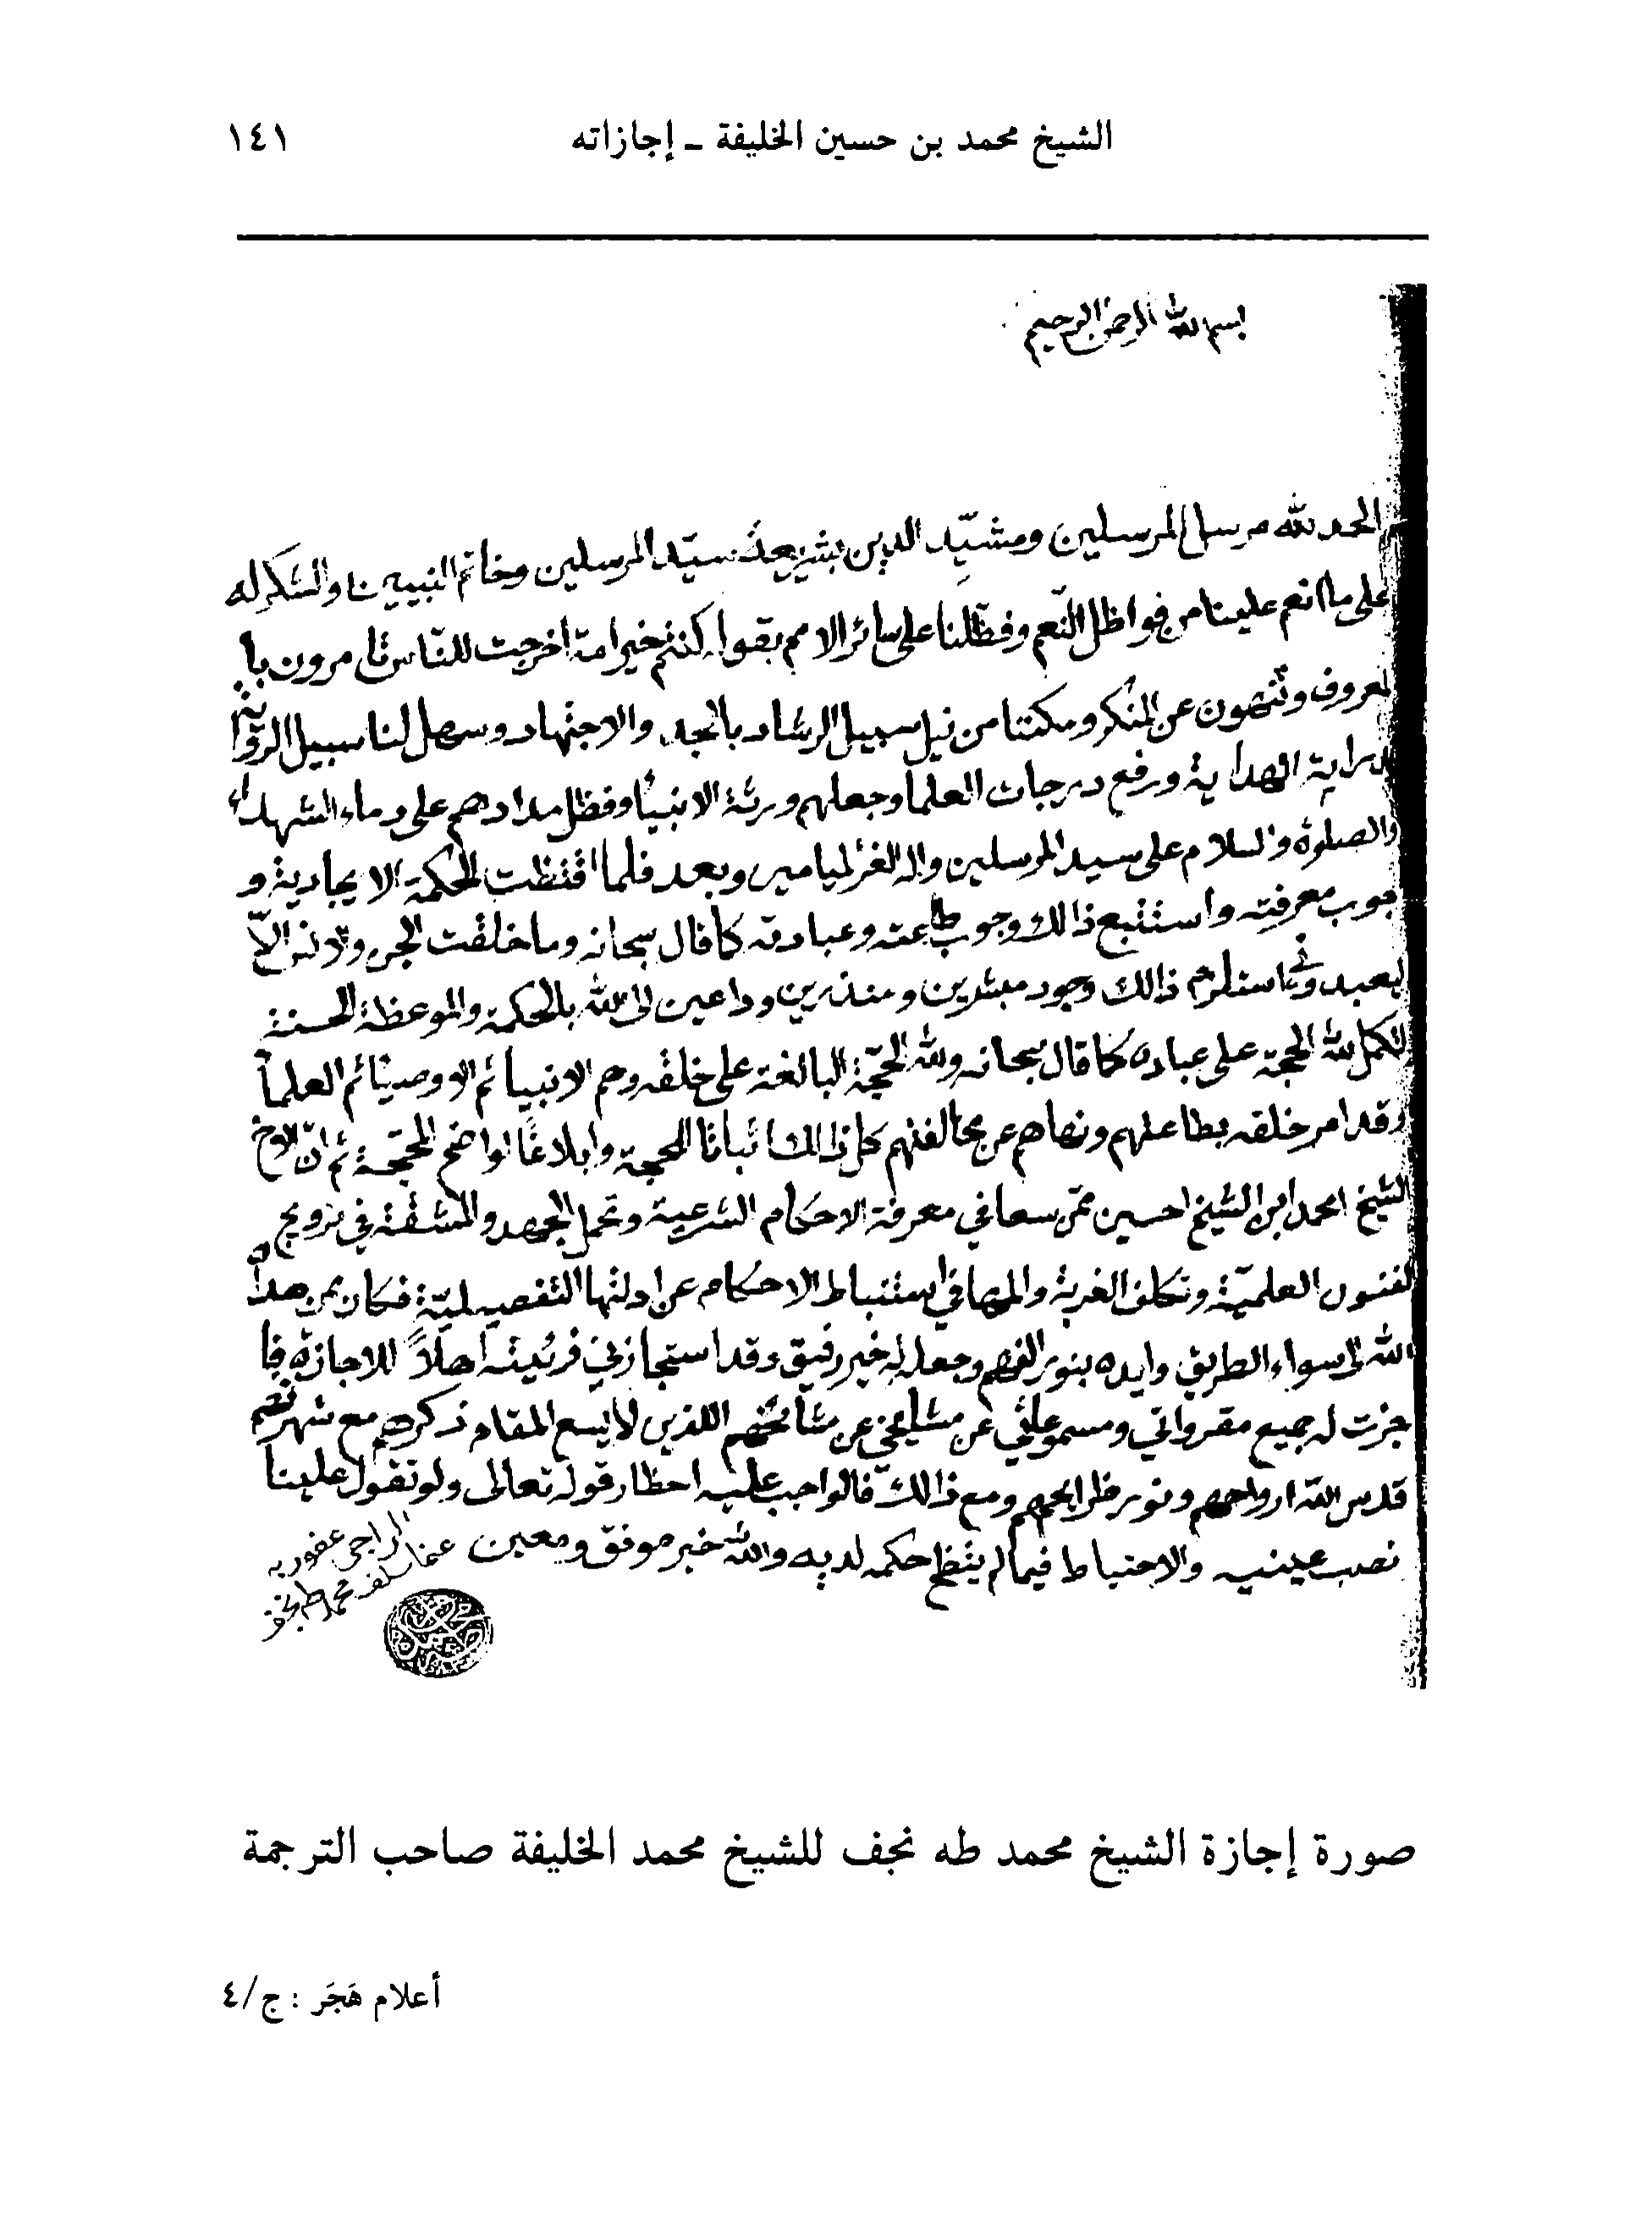 الشيخ محمد بن حسين الخليفة ـ إجازاته ١٤١
بسم الله الرحمن الرحيم
الحمد لله مرسل المرسلين ومشيّد الدين بشريعة سيّد المرسلين وخاتم النبيين والشكر له
على ما انعم علينا من فواظل النّعم وفظّلنا على سائر الامم بقوله كنتم خير امة اخرجت للنّاس تامرون با
لمعروف وتنهون عن المنكر ومكننا من نيل سبيل الرشاد بالجد والاجتهاد وسهل لنا سبيل الروّاية
لدراية الهداية ورفع درجات العلما وجعلهم ورثة الانبيا وفظل مدادهم على دماء الشهداء
والصلوة والسلام على سيد المرسلين واله الغر لميامين وبعد فلما اقتظت الحكمة الايجادية و
جوب معرفته واستتبع ذالك وجوب طاعته وعبادته كما قال سبحانه وما خلقت الجن والانس الاّ
ليعبدوني استلزم ذالك وجود مبشرين ومنذرين وداعين الى الله بالحكمة والموعظة الحسنة
لتكمل لله الحجة على عباده كما قال سبحانه ولله الحجّة البالغة على خلقه وهم الانبيا ثم الاوصيا ثم العلما
وقد امر خلقه بطاعتهم ونهاهم عن مخالفتهم كل ذالك اثباتا للحجة وابلاغًا لواضح المحجّة ثم انّ الاخ
الشيخ امحمد ابن الشيخ احسين ممّن سعا في معرفة الاحكام الشرعية وتحمل الجهد والمشقة في ترويج
لفنون العلميّة وتكلف الغربة والمها في استنباط الاحكام عن ادلتها التفصيليّة فكان بمن هداه
الله الى سواء الطريق وايده بنور الفهم وجعله له خير رفيق وقد استجازني فرئيته اهلاً للاجازة فا
جزت له جميع مقرواتي ومسموعاتي عن مشايخي عن مشائخهم اللذين لا يسع المقام ذكرهم مع شهرتهم
قدس الله ارواحهم ونور ظرايحهم ومع ذالك فالواجب عليه احظار قوله تعالى ولو تقول علينا
نصب عينيه والاحتياط فيما لم يتظح حكمه لديه والله خير موفق ومعين
الراجي عفو ربه
محمد طه نجف
صورة إجازة الشيخ محمد طه نجف للشيخ محمد الخليفة صاحب الترجمة
أعلام هَجَر : ج/٤